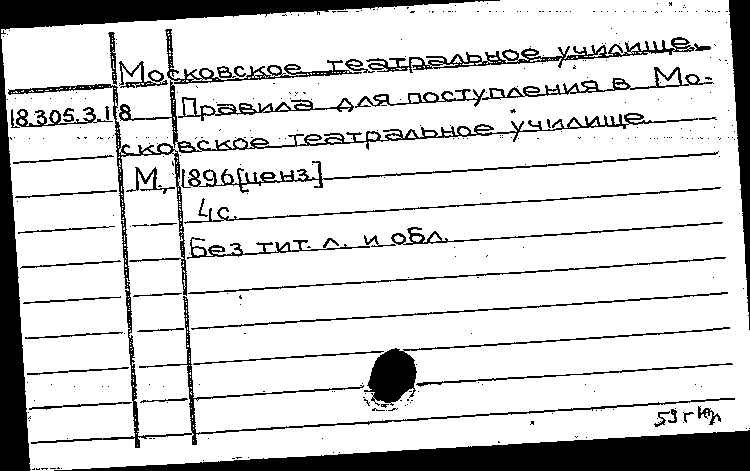 Московское театральное училище.
18.305.3.118 Правила для поступления в Мо-
сковское театральное училище.
М., 1896 [ценз.]
4 с.
Без тит. л. и обл.
53 г